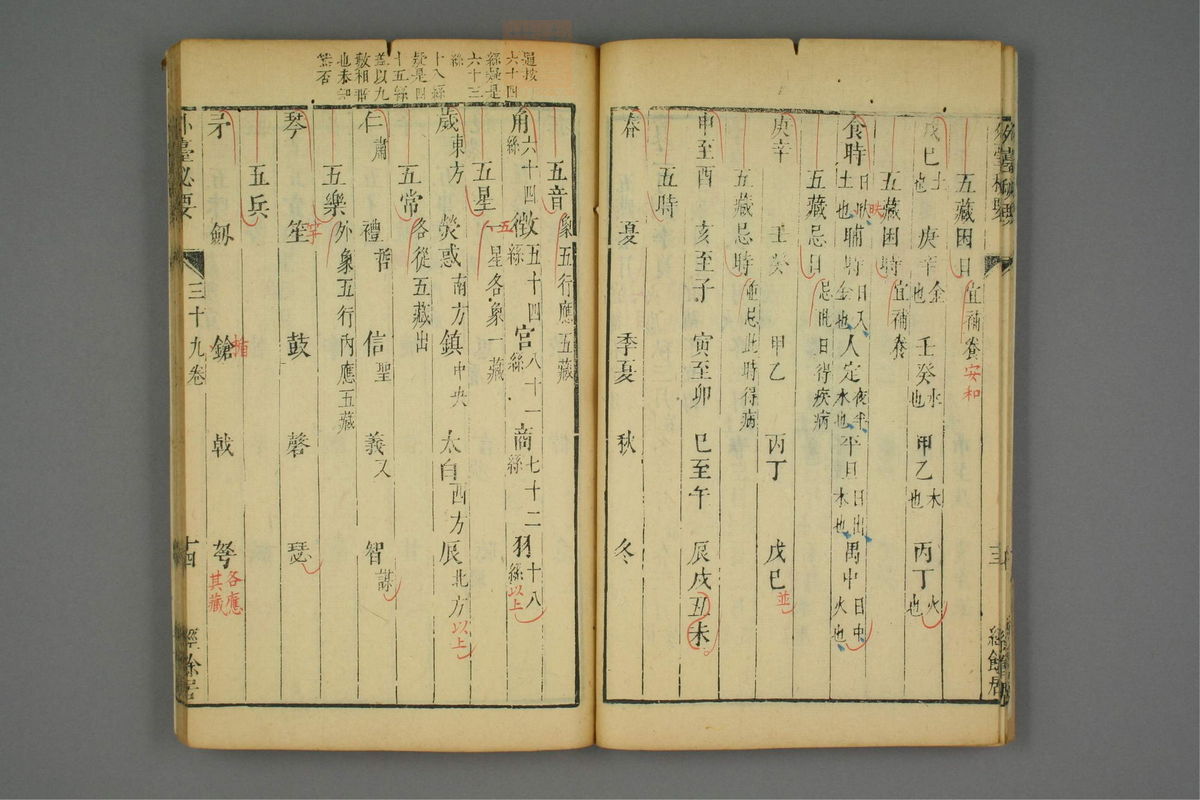 五藏困日宜補養安和
戊巳土也 庚辛金也 壬癸水也 甲乙木也 丙丁火也
五藏困時宜補養
食時日昳土也 晡時日入金也 人定夜半水也 平旦日出木也 禺中日中火也
昳
五藏忌日忌此日得疾病
庚辛 壬癸 甲乙 丙丁 戊巳並
五藏忌時並忌此時得病
申至酉 亥至子 寅至卯 巳至午 辰戍丑未
五時
春 夏 季夏 秋 冬
按
六十四
絲疑是
六十三
絲
十八絲
疑是四
十五絲
盖以九
數相
也未知
否
五音象五行應五藏
角六十四絲 徵五十四絲 宮八十一絲 商七十二絲 羽十八絲以上
五星五星各象一藏
歲東方 熒惑南方 鎮中央 太白西方 辰北方以上
五常各從五藏出
仁肅 禮哲 信聖 義乂 智謀
五樂外象五行内應五藏
琴 笙竽 鼓 磬 瑟
五兵
矛 劔 鎗楯 戟 弩各應其藏
外臺秘要 三十九卷 十四 經餘居